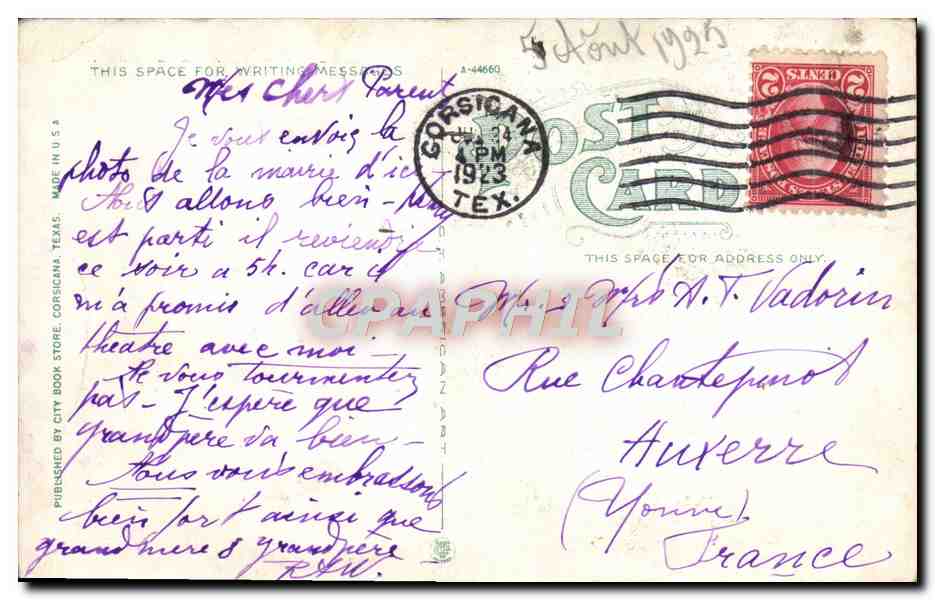 5 Août 1923
THIS SPACE FOR WRITING MESSAGES
A-44660
Mes Chers Parent
Je vous envoie la
photo de la mairie d'ici -
Nous allons bien -
est parti il
ce soir a 5h. car il
m'a promis d'aller au
theatre avec moi -
Ne vous tourmentez
pas - J'espère que
grandpère va bien -
Nous vous embrassons
bien fort ainsi que
grandmere & grandpère
PUBLISHED BY CITY BOOK STORE, CORSICANA, TEXAS. MADE IN U.S.A
CORSICANA
24
4 PM
1923
TEX.
POST
CARD
2 CENTS 2
THIS SPACE FOR ADDRESS ONLY.
Mr. & Mrs A. T. Vadorin
Rue Chantepinot
Auxerre
(Yonne)
France
AMERICAN ART
CPAPHIL